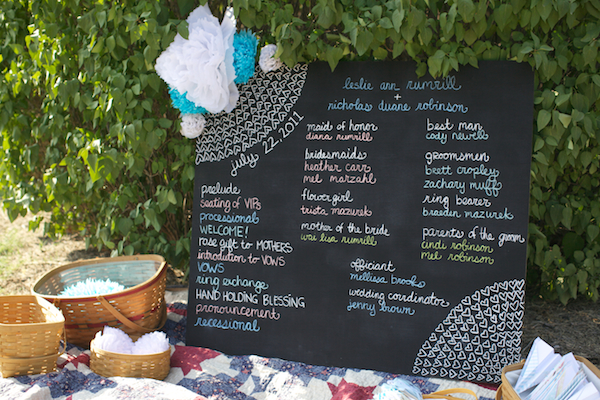 leslie ann rumrill
+
nicholas duane robinson
july 22, 2011
prelude
seating of VIPs
processional
WELCOME!
rose gift to MOTHERS
introdution to VOWS
VOWS
ring exchange
HAND HOLDING BLESSING
pronouncement
recessional
maid of honor
diana rumrill
bridesmaids
heather carr
mel marzahl
flower girl
trista mazurek
mother of the bride
wai lisa rumrill
officiant
melissa brooks
wedding coordinator
jenny brown
best man
cody newell
groomsmen
brett cropley
zachary muff
ring bearer
braeden mazurek
parents of the groom
cindi robinson
mel robinson